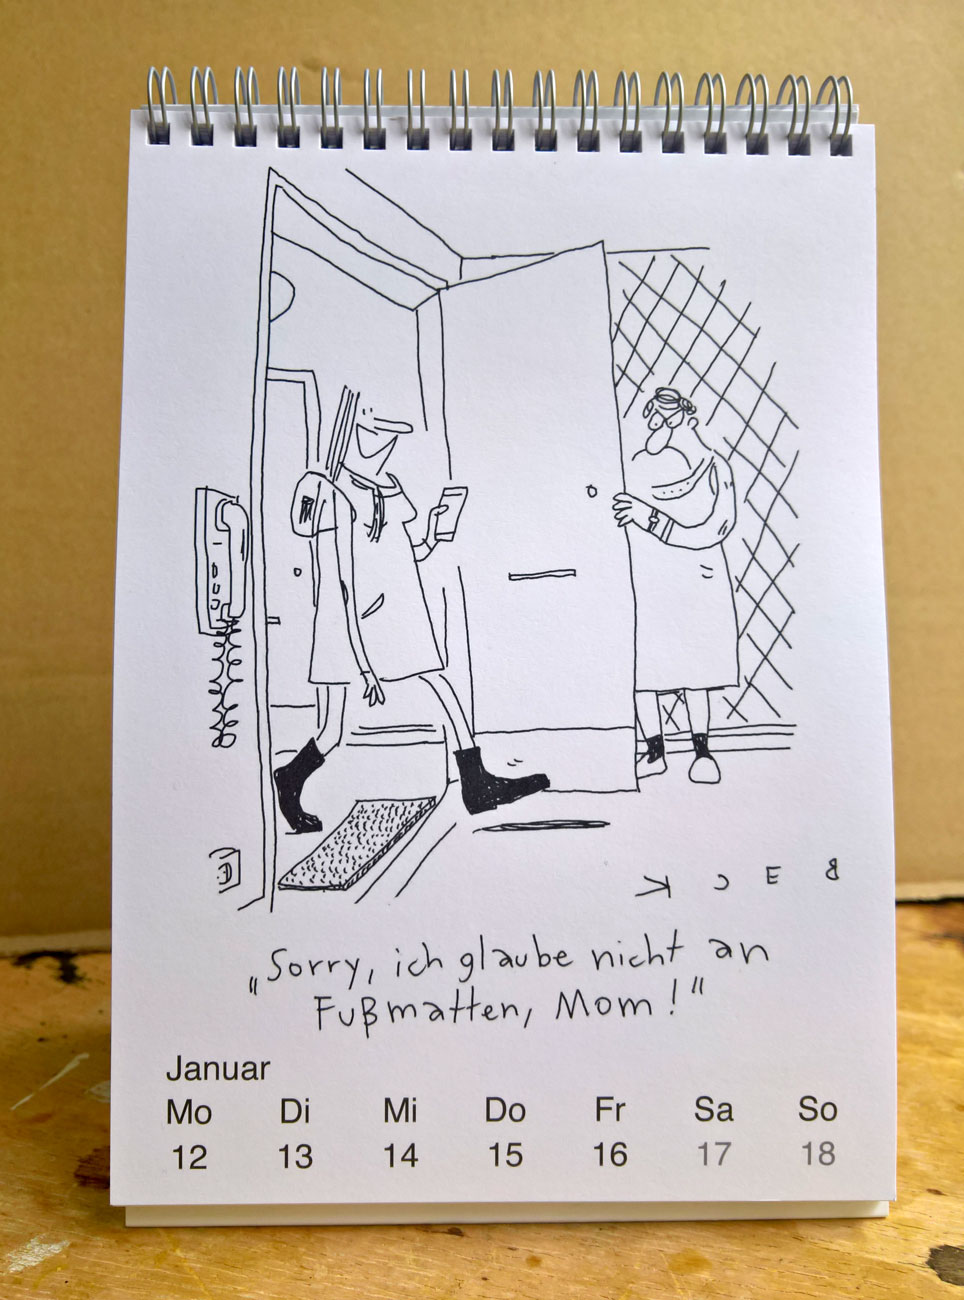 B E C K
„Sorry, ich glaube nicht an
Fußmatten, Mom!"
Januar
Mo Di Mi Do Fr Sa So
12 13 14 15 16 17 18